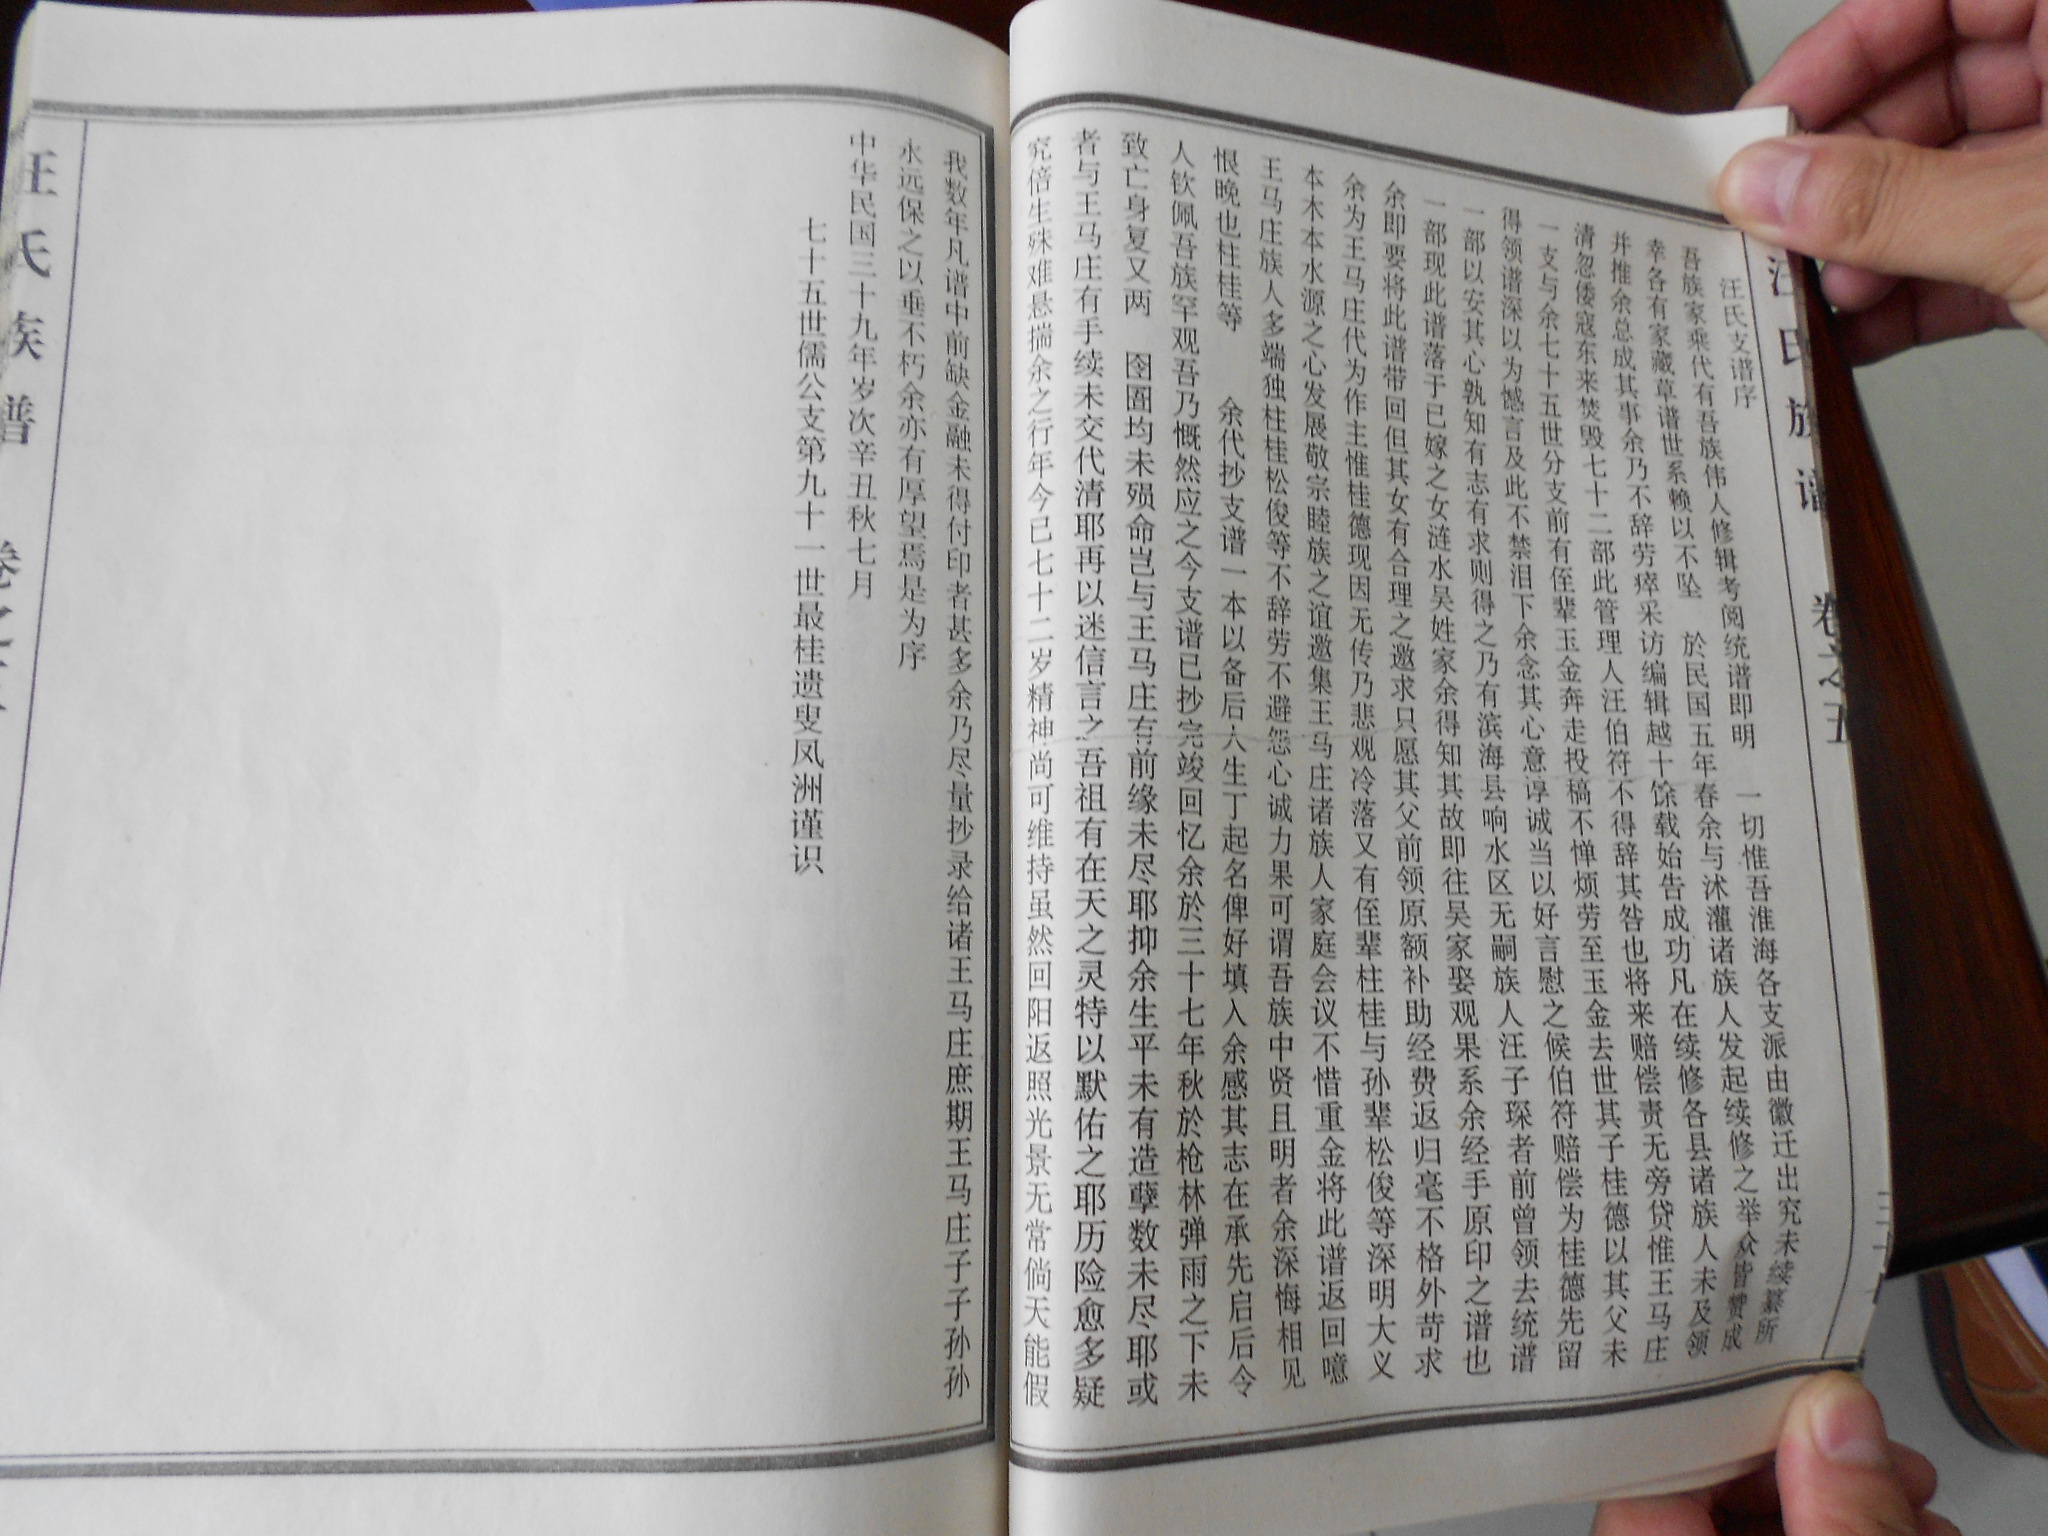 汪氏族谱 卷之五
汪氏支谱序
吾族家乘代有吾族伟人修辑考阅统谱即明 一切惟吾淮海各支派由徽迁出究未续纂所
幸各有家藏草谱世系赖以不坠 於民国五年春余与沭灌诸族人发起续修之举众皆赞成
并推余总成其事余乃不辞劳瘁采访编辑越十馀载始告成功凡在续修各县诸族人未及领
清忽倭寇东来焚毁七十二部此管理人汪伯符不得辞其咎也将来赔偿责无旁贷惟王马庄
一支与余七十五世分支前有侄辈玉金奔走投稿不惮烦劳至玉金去世其子桂德以其父未
得领谱深以为憾言及此不禁泪下余念其心意谆诚当以好言慰之候伯符赔偿为桂德先留
一部以安其心孰知有志有求则得之乃有滨海县响水区无嗣族人汪子琛者前曾领去统谱
一部现此谱落于已嫁之女涟水吴姓家余得知其故即往吴家娶观果系余经手原印之谱也
余即要将此谱带回但其女有合理之邀求只愿其父前领原额补助经费返归毫不格外苛求
余为王马庄代为作主惟桂德现因无传乃悲观冷落又有侄辈柱桂与孙辈松俊等深明大义
本木本水源之心发展敬宗睦族之谊邀集王马庄诸族人家庭会议不惜重金将此谱返回噫
王马庄族人多端独柱桂松俊等不辞劳不避怨心诚力果可谓吾族中贤且明者余深悔相见
恨晚也柱桂等 余代抄支谱一本以备后人生丁起名俾好填入余感其志在承先启后令
人钦佩吾族罕观吾乃慨然应之今支谱已抄完竣回忆余於三十七年秋於枪林弹雨之下未
致亡身复又两 囹圄均未殒命岂与王马庄有前缘未尽耶抑余生平未有造孽数未尽耶或
者与王马庄有手续未交代清耶再以迷信言之吾祖有在天之灵特以默佑之耶历险愈多疑
究倍生殊难悬揣余之行年今已七十二岁精神尚可维持虽然回阳返照光景无常倘天能假
我数年凡谱中前缺金融未得付印者甚多余乃尽量抄录给诸王马庄庶期王马庄子子孙孙
永远保之以垂不朽余亦有厚望焉是为序
中华民国三十九年岁次辛丑秋七月
七十五世儒公支第九十一世最桂遗叟凤洲谨识
汪氏族谱 卷之五